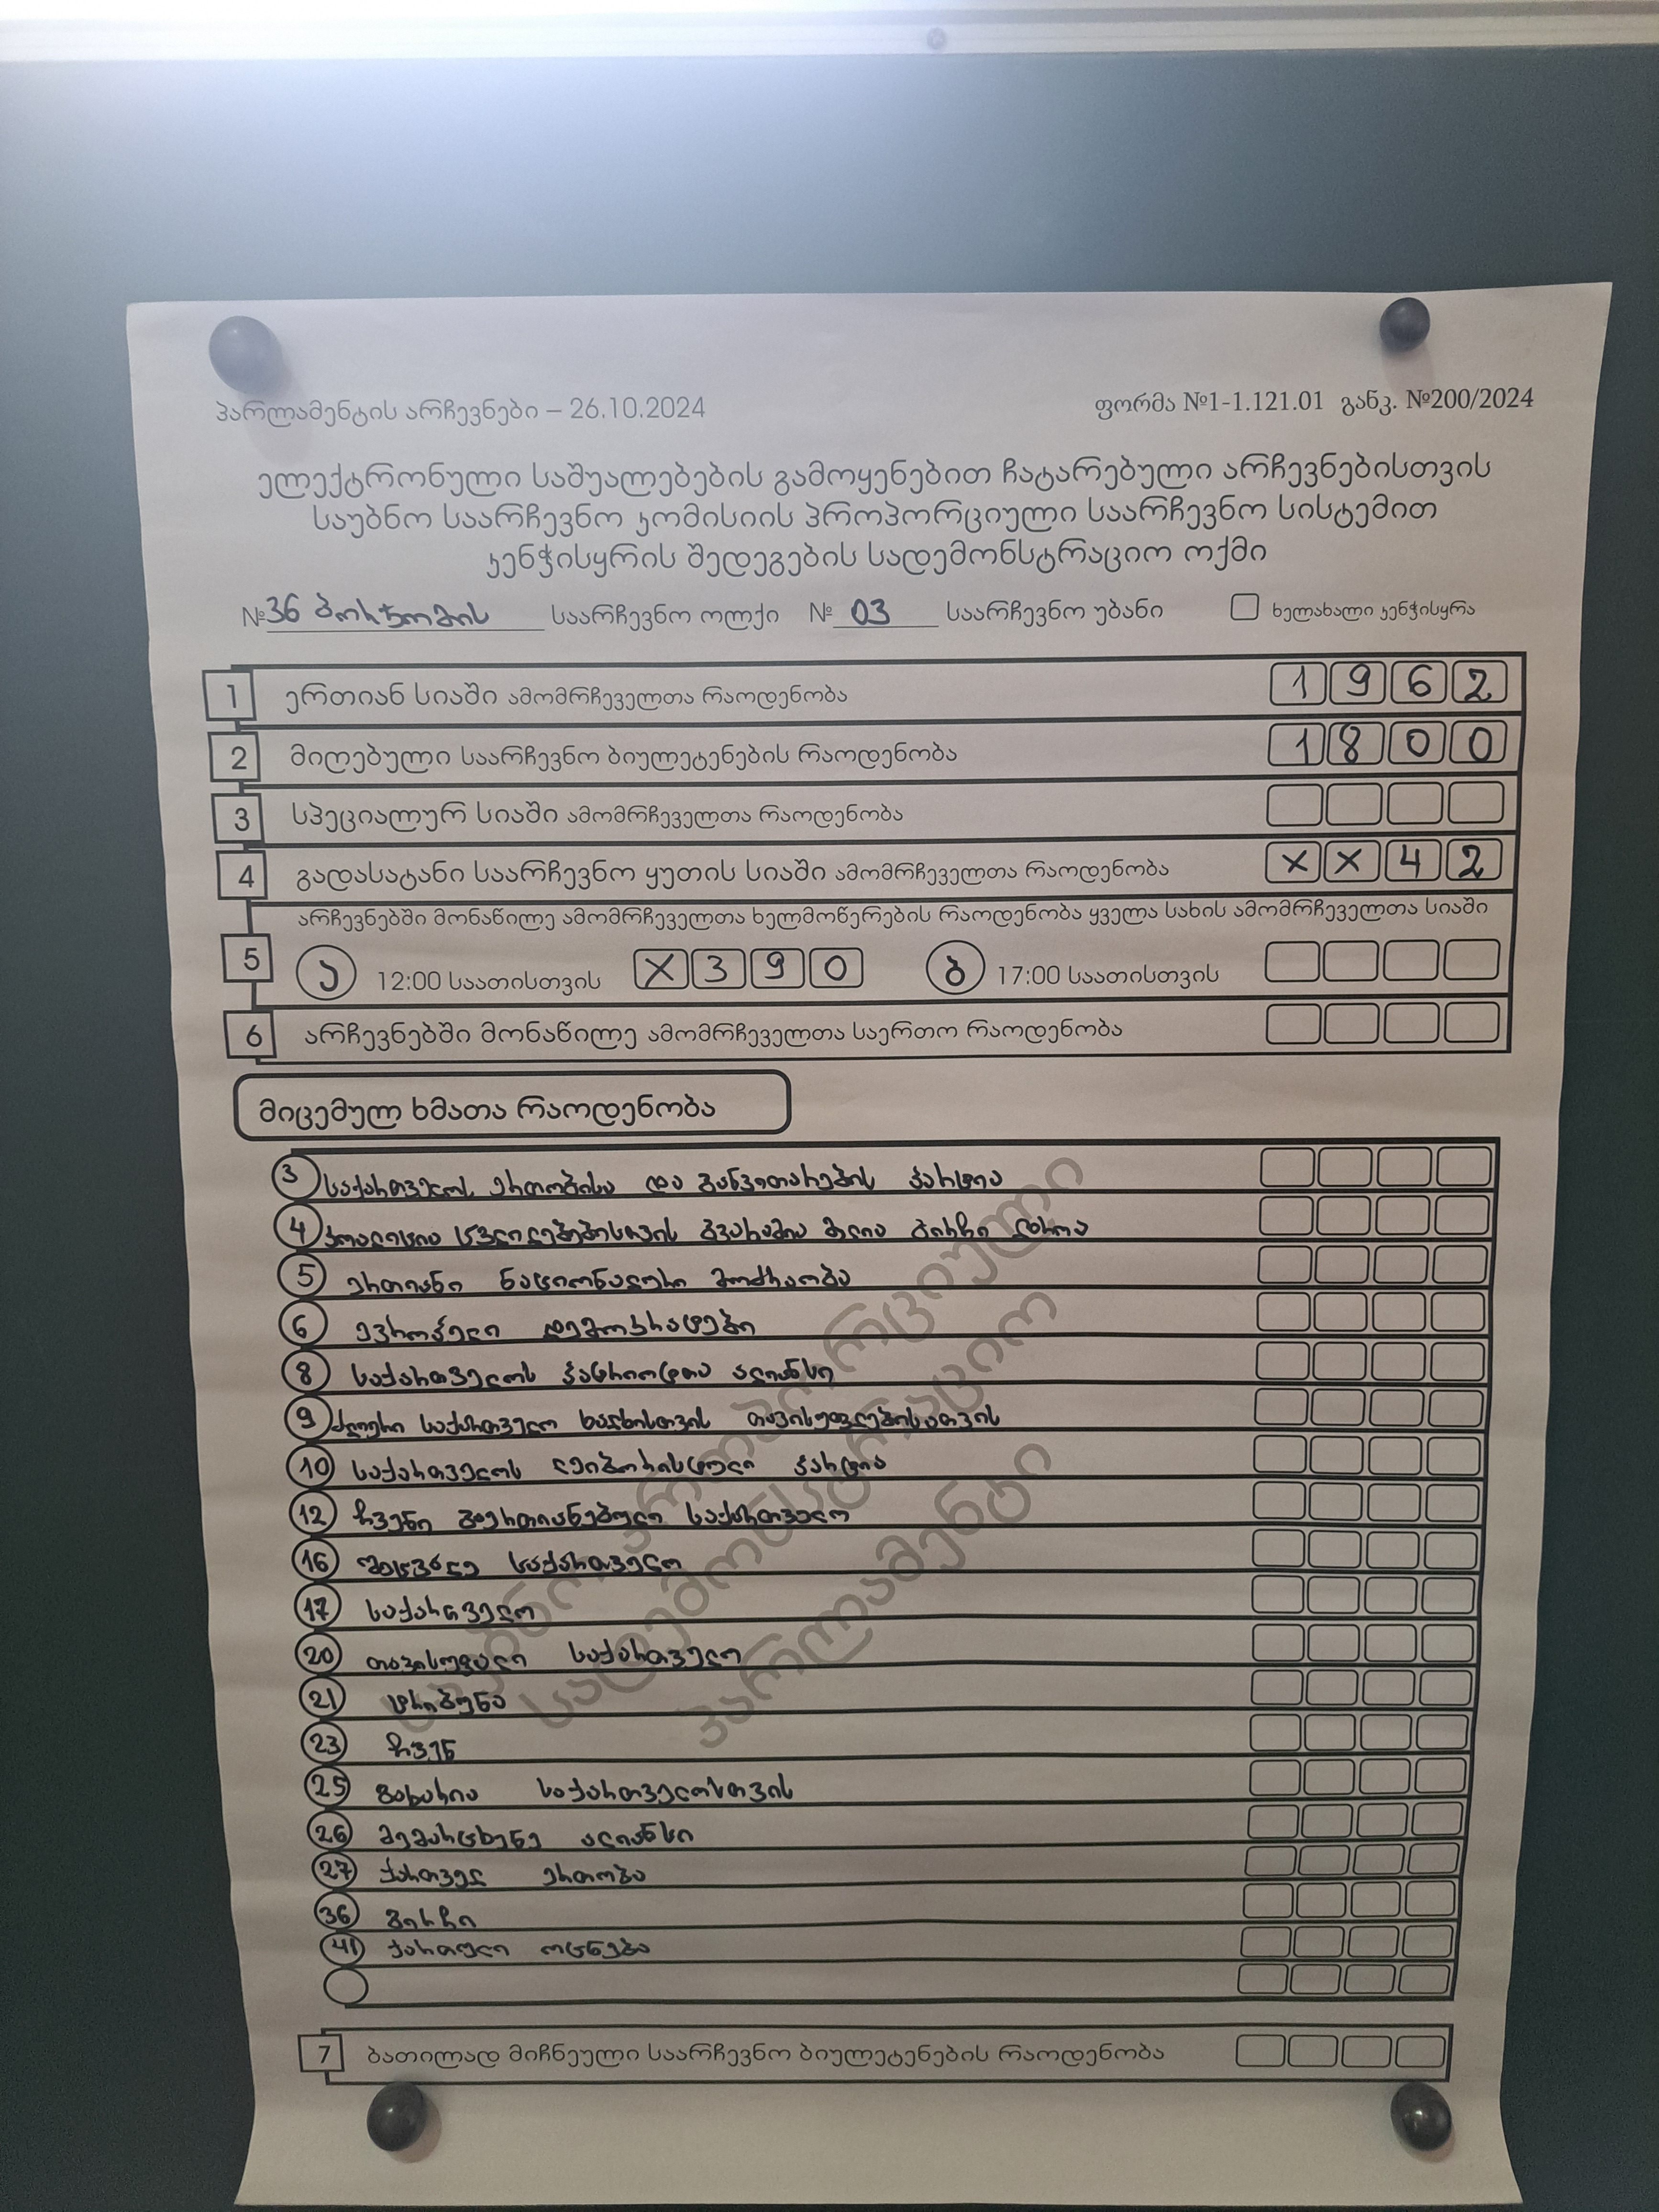 პარლამენტის არჩევნები – 26.10.2024
ფორმა №1-1.121.01 განკ. №200/2024
ელექტრონული საშუალებების გამოყენებით ჩატარებული არჩევნებისთვის
საუბნო საარჩევნო კომისიის პროპორციული საარჩევნო სისტემით
კენჭისყრის შედეგების სადემონსტრაციო ოქმი
№ 36 ბორჯომის საარჩევნო ოლქი № 03 საარჩევნო უბანი ხელახალი კენჭისყრა
1 ერთიან სიაში ამომრჩეველთა რაოდენობა 1 9 6 2
2 მიღებული საარჩევნო ბიულეტენების რაოდენობა 1 8 0 0
3 სპეციალურ სიაში ამომრჩეველთა რაოდენობა
4 გადასატანი საარჩევნო ყუთის სიაში ამომრჩეველთა რაოდენობა X X 4 2
არჩევნებში მონაწილე ამომრჩეველთა ხელმოწერების რაოდენობა ყველა სახის ამომრჩეველთა სიაში
5 ა 12:00 საათისთვის X 3 9 0 ბ 17:00 საათისთვის
6 არჩევნებში მონაწილე ამომრჩეველთა საერთო რაოდენობა
მიცემულ ხმათა რაოდენობა
3 საქართველოს ერთობისა და განვითარების პარტია
4 კოალიცია ცვლილებებისთვის გვარამია მელია გირჩი დროა
5 ერთიანი ნაციონალური მოძრაობა
6 ევროპული დემოკრატები
8 საქართველოს პატრიოტთა ალიანსი
9 ძლიერი საქართველო ხალხისთვის თავისუფლებისათვის
10 საქართველოს ლეიბორისტული პარტია
12 ჩვენი გაერთიანებული საქართველო
16 მწვანე საქართველო
17 საქართველო
20 თავისუფალი საქართველო
21 ტრიბუნა
23 ჩვენ
25 გახარია საქართველოსთვის
26 მემარცხენე ალიანსი
27 ქართველ ერთობა
36 გირჩი
41 ქართული ოცნება
7 ბათილად მიჩნეული საარჩევნო ბიულეტენების რაოდენობა
საუბნო პროპორციული
სადემონსტრაციო
პარლამენტი